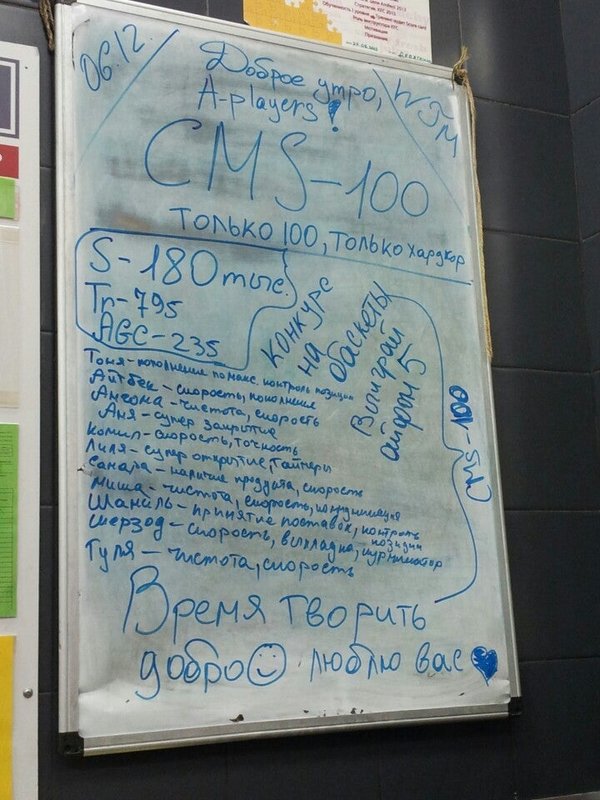 Стратегия KFC 2013
Мотивация
Признание
06.12
Доброе утро,
A-players!
CMS-100
только 100, только хардкор
S-180тыс.
Tr-795
AGC-235
конкурс
на
баскеты
Выиграй
айфон 5
CMS-100
Тоня-пополнение по макс. контроль позиции
Айтбек-скорость, пополнение
Ансона-чистота, скорость
Аня-супер закрытие
Комил-скорость, точность
Лиля-супер открытие, таймеры
Санара-наличие продукта, скорость
Миша-чистота, скорость, координация
Шамиль-принятие поставок, контроль позиции
Шерзод-скорость, выкладка,
Гуля-чистота, скорость
Время творить
добро☺ люблю вас♥